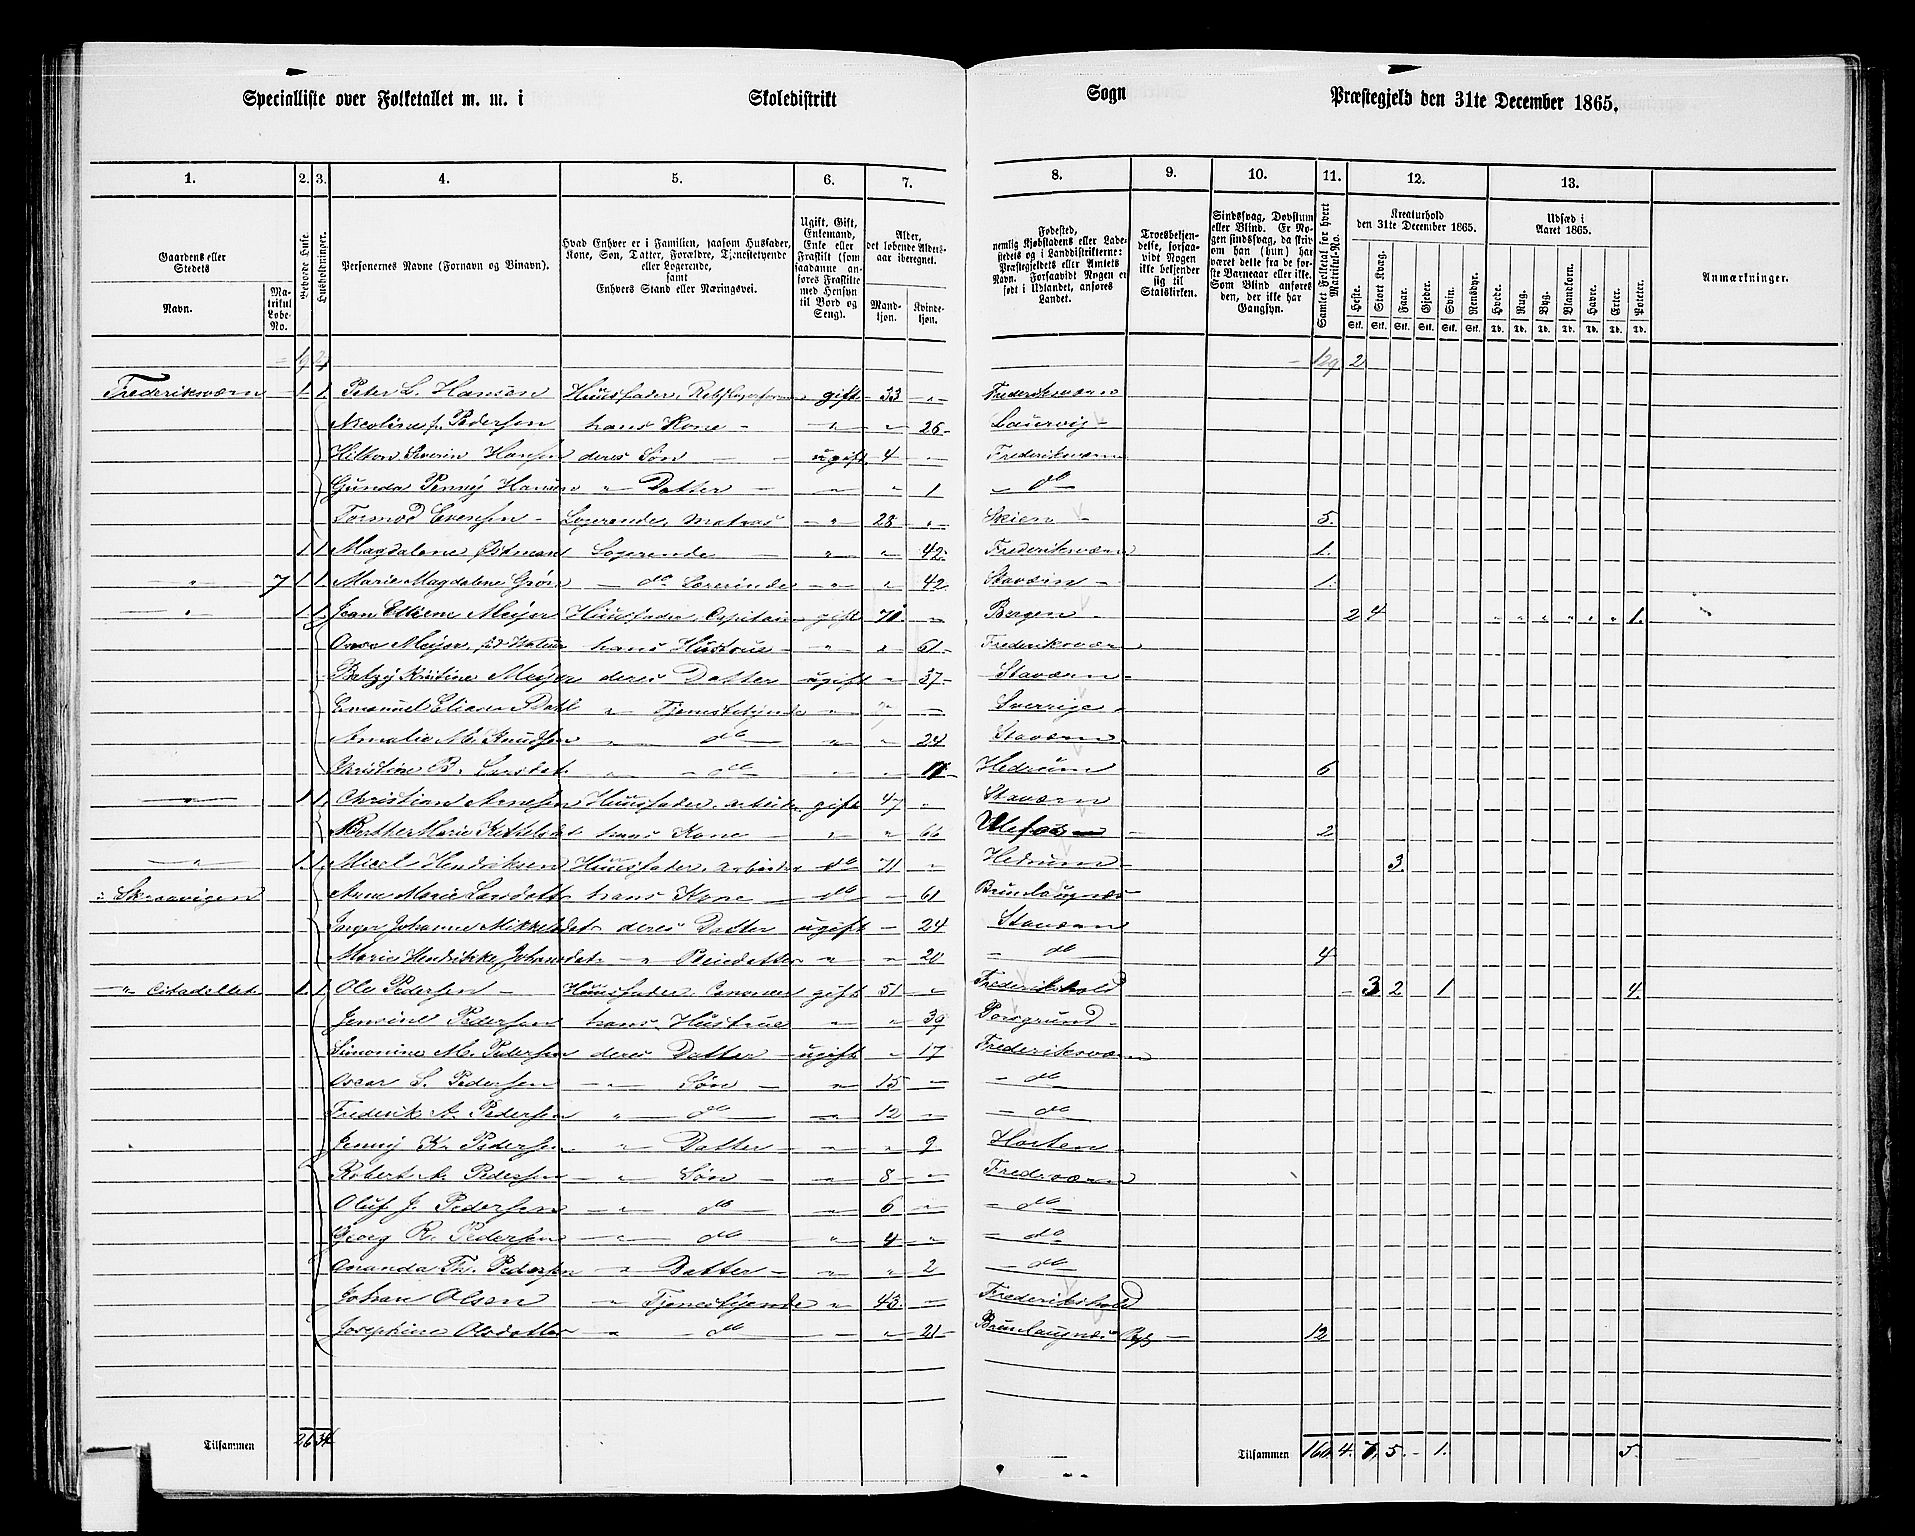 Specialliste over Folketallet m. m. i Skoledistrikt Sogn Præstegjeld den 31te December 1865.
1. 2. 3. 4. 5. 6. 7. 8. 9. 10. 11. 12. 13.
Gaardens eller Stedets
Navn.
Matrikul Løbe-No.
Beboede Huse.
Husholdninger.
Personernes Navne (Fornavn og Binavn).
Hvad Enhver er i Familien, saasom Husfader, Kone, Søn, Datter, Forældre, Tjenestetyende eller Logerende,
samt
Enhvers Stand eller Næringsvei.
Ugift, Gift, Enkemand, Enke eller Fraskilt (som saadanne anføres Fraskilte med Hensyn til Bord og Seng).
Alder, det løbende Alders-aar iberegnet.
Mandkjøn. Kvindekjøn.
Fødested, nemlig Kjøbstadens eller Ladestedets og i Landdistrikterne: Præstegjeldets eller Amtets Navn. Forsaavidt Nogen er født i Udlandet, anføres Landet.
Troesbekjendelse, forsaavidt Nogen ikke bekjender sig til Statskirken.
Sindssvag, Døvstum eller Blind. Er Nogen sindssvag, da skrives om han (hun) har været dette fra de første Barneaar eller ikke. Som Blind anføres den, der ikke har Gangsyn.
Samlet Folketal for hvert Matrikul-No.
Kreaturhold den 31te December 1865.
Heste. Stort Kvæg. Faar. Gjeder. Svin. Rensdyr.
Stk. Stk. Stk. Stk. Stk. Stk.
Udsæd i Aaret 1865.
Hvede. Rug. Byg. Blandkorn. Havre. Erter. Poteter.
Td. Td. Td. Td. Td. Td. Td.
Anmærkninger.
129 2
Frederiksværn 1 1. Peter L. Hansen Huusfader, gift 33 " Frederiksværn
Nicoline f. Pedersen hans Kone " " 26 Laurvig
Severin Hansen deres Søn ugift 4 " Frederiksværn
Gunda Hansen " Datter " " 1 do
Tormod Evensen Logerende, Matros " 28 " Skien 5.
1. 1. Magdalene Logerende " " 42 Frederiksværn 1.
" 7 1 1. Marie Magdalene Grøn do Lærerinde " " 42 Staværn 1.
" 1 1. Jean Meijer Huusfader, Capitain gift 71 " Bergen 2 4 " " " " " " 1.
Meijer, hans Hustrue " " 61 Frederiksværn
Betzy Kristine Meijer deres Datter ugift " 37 Staværn
Emanuel Eliasen Dahl " Tjenestetyende " Sverrige
Amalie M. Knudsen " do " " 24 Staværn
Kristine B. Larsdat. " do " " Hedrum 6
" 1 1. Christian Arnesen Huusfader, gift 47 " Staværn
Berthe Marie hans Kone " " 66 2
" 1. 1. Hendriksen Huusfader, Arbeider do 71 " Hedrum 3.
" Skraavigen Anne Marie Larsdatter hans Kone do " 61 Brunlaugnæs
Johanne Mikkelsdat. deres Datter ugift " 24 Staværn
Marie Hendrikke Johansdat. " " " 20 do 4
" Citadellet 1. 1. Ole Pedersen Huusfader, gift 51 " Frederikshald 3 2 1 4.
Jensine Pedersen hans Hustrue " " 39 Porsgrund
Simonine M. Pedersen deres Datter ugift " 17 Frederiksværn
Oscar S. Pedersen " Søn " 15 " do
Frederik A. Pedersen " do " 12 " do
Jenny K. Pedersen " Datter " " 9 Horten
Robert A. Pedersen " Søn " 8 " Fredrværn
Oluf J. Pedersen " do " 6 " do
Georg R. Pedersen " do " 4 " do
Amanda Th. Pedersen " Datter " " 2 do
Johan Olsen " Tjenestetyende " 43. " Frederikshald
Josephine Olsdatter " do " " 21 Brunlaugnæs 12
Tilsammen 26 34 Tilsammen 160 4. 7. 5 1. 5.